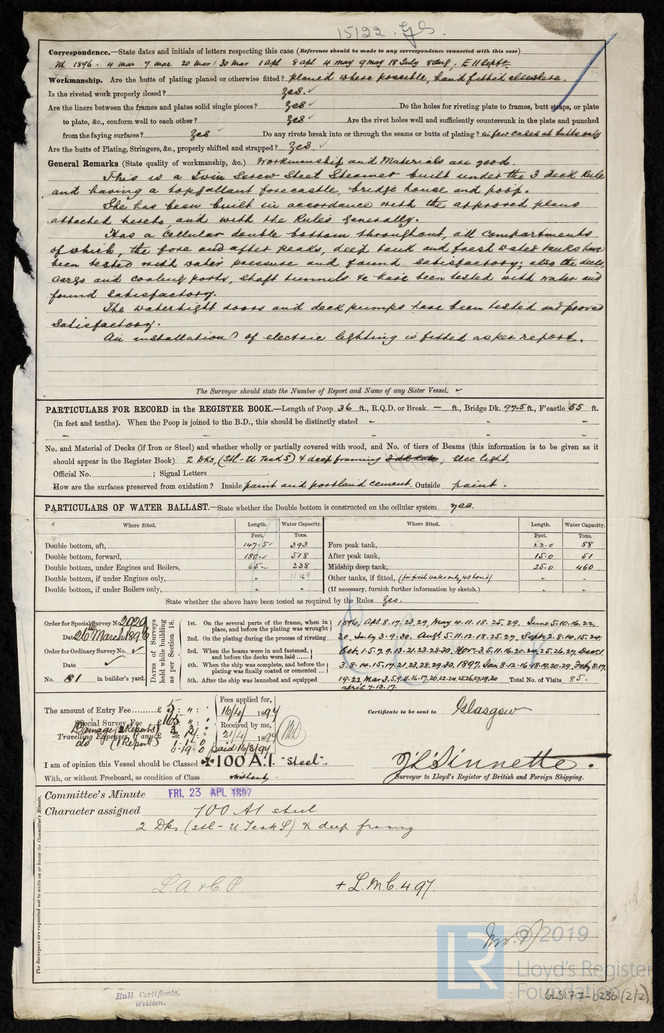 15122 Gls.
Correspondence.—State dates and initials of letters respecting this case (Reference should be made to any correspondence connected with this case)
1896. 4 mar 7 mar 20 mar 30 mar 1 apl 8 apl 4 may 9 may 18 July 8 aug, E 11 Sept.
Workmanship. Are the butts of plating planed or otherwise fitted? planed where possible, hand fitted elsewhere.
Is the riveted work properly closed? Yes
Are the liners between the frames and plates solid single pieces? Yes Do the holes for riveting plate to frames, butt straps, or plate
to plate, &c., conform well to each other? Yes Are the rivet holes well and sufficiently countersunk in the plate and punched
from the faying surfaces? Yes Do any rivets break into or through the seams or butts of plating? in few cases at butts only
Are the butts of Plating, Stringers, &c., properly shifted and strapped? Yes.
General Remarks (State quality of workmanship, &c.) Workmanship and Materials are good.
This is a Twin Screw Steel Steamer built under the 3 deck Rule
and having a topgallant forecastle, bridge house and poop.
She has been built in accordance with the approved plans
attached hereto, and with the Rules generally.
Has a Cellular double bottom throughout, all compartments
of which, the fore and after peaks, deep tank and fresh water tanks have
been tested with water pressure and found satisfactory; also the decks,
cargo and cooling ports, shaft tunnels &c have been tested with water and
found satisfactory.
The watertight doors and deck pumps have been tested and proved
satisfactory.
An installation of electric lighting is fitted as per report.
The Surveyor should state the Number of Report and Name of any Sister Vessel.
PARTICULARS FOR RECORD in the REGISTER BOOK.—Length of Poop 36 ft., R.Q.D. or Break — ft., Bridge Dk. 97.5 ft., F'castle 55 ft.
(in feet and tenths). When the Poop is joined to the B.D., this should be distinctly stated
No. and Material of Decks (if Iron or Steel) and whether wholly or partially covered with wood, and No. of tiers of Beams (this information is to be given as it
should appear in the Register Book) 2 Dks, (Stl - U Teak S) & deep framing ; Elec light.
Official No. ; Signal Letters
How are the surfaces preserved from oxidation? Inside paint and portland cement. Outside paint.
PARTICULARS OF WATER BALLAST.—State whether the Double bottom is constructed on the cellular system yes.
Where fitted. Length. Water Capacity. Where fitted. Length. Water Capacity.
Feet. Tons. Feet. Tons.
Double bottom, aft, 147.5 393 Fore peak tank, 22.0 88
Double bottom, forward, 180. 518 After peak tank, 15.0 51
Double bottom, under Engines and Boilers, 65. 238 Midship deep tank, 25.0 460
Double bottom, if under Engines only, 1149 Other tanks, if fitted, (for fresh water only, 40 tons)
Double bottom, if under Boilers only, (If necessary, furnish further information by sketch.)
State whether the above have been tested as required by the Rules Yes.
Order for Special Survey No. 2029
Date 26 March 1896
Order for Ordinary Survey No.
Date
No. 81 in builder's yard.
Dates of Surveys held while building as per Section 18.
1st. On the several parts of the frame, when in place, and before the plating was wrought
2nd. On the plating during the process of riveting
3rd. When the beams were in and fastened, and before the decks were laid
4th. When the ship was complete, and before the plating was finally coated or cemented
5th. After the ship was launched and equipped
1896, Apl. 8.17.23.29, May 4.11.18.25.29. June 5.10.16.22.
Total No. of Visits 85.
april 7.13.17.
The amount of Entry Fee £ 5 : " :
Special Survey Fee
Damage (2 Reports)
Travelling Expenses, if any
do (1 Report) 1.19.0
Fees applied for, 16/4/1897
Received by me, 21/4/1897
paid 16/3/97
Certificate to be sent to Glasgow
I am of opinion this Vessel should be Classed ✠100 A.1. "Steel".
With, or without Freeboard, as condition of Class without
J. L. Sinnette.
Surveyor to Lloyd's Register of British and Foreign Shipping.
The Surveyors are requested not to write on or below the Committee's Minute.
Committee's Minute FRI. 23 APL 1897
Character assigned 100 A1 steel
2 Dks (stl - U Teak S) & deep framing
L.A. & C.P. + L.M.C. 4.97.
Hull Certificate.
Written.
LR
© 2019
Lloyd's Register
Foundation
GLS177-0236 (2/2)